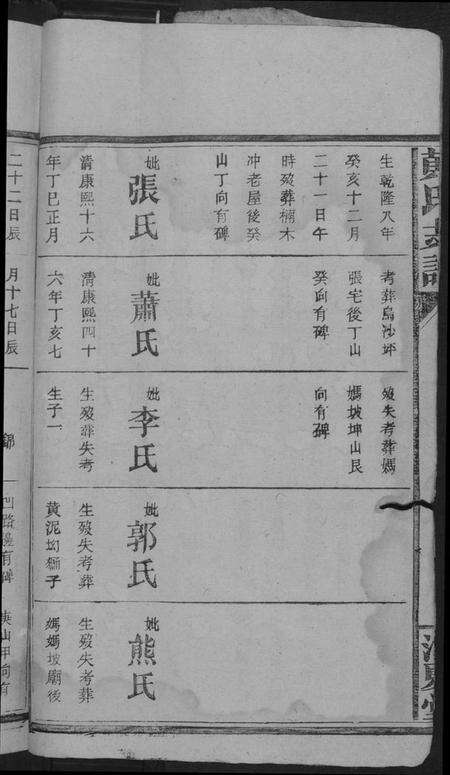 氏
譜
生乾隆八年
癸亥十二月
二十一日午
時殁葬楠木
冲老屋後癸
山丁向有碑
妣張氏
清康熙十六
年丁巳正月
考葬烏沙坪
張宅後丁山
癸向有碑
妣蕭氏
清康熙四十
六年丁亥七
殁失考葬媽
媽坡坤山艮
向有碑
妣李氏
生殁葬失考
生子一
妣郭氏
生殁失考葬
黄泥坳獅子
妣熊氏
生殁失考葬
媽媽坡廟後
二十二日辰
月十七日辰
路邊有碑
山甲向有